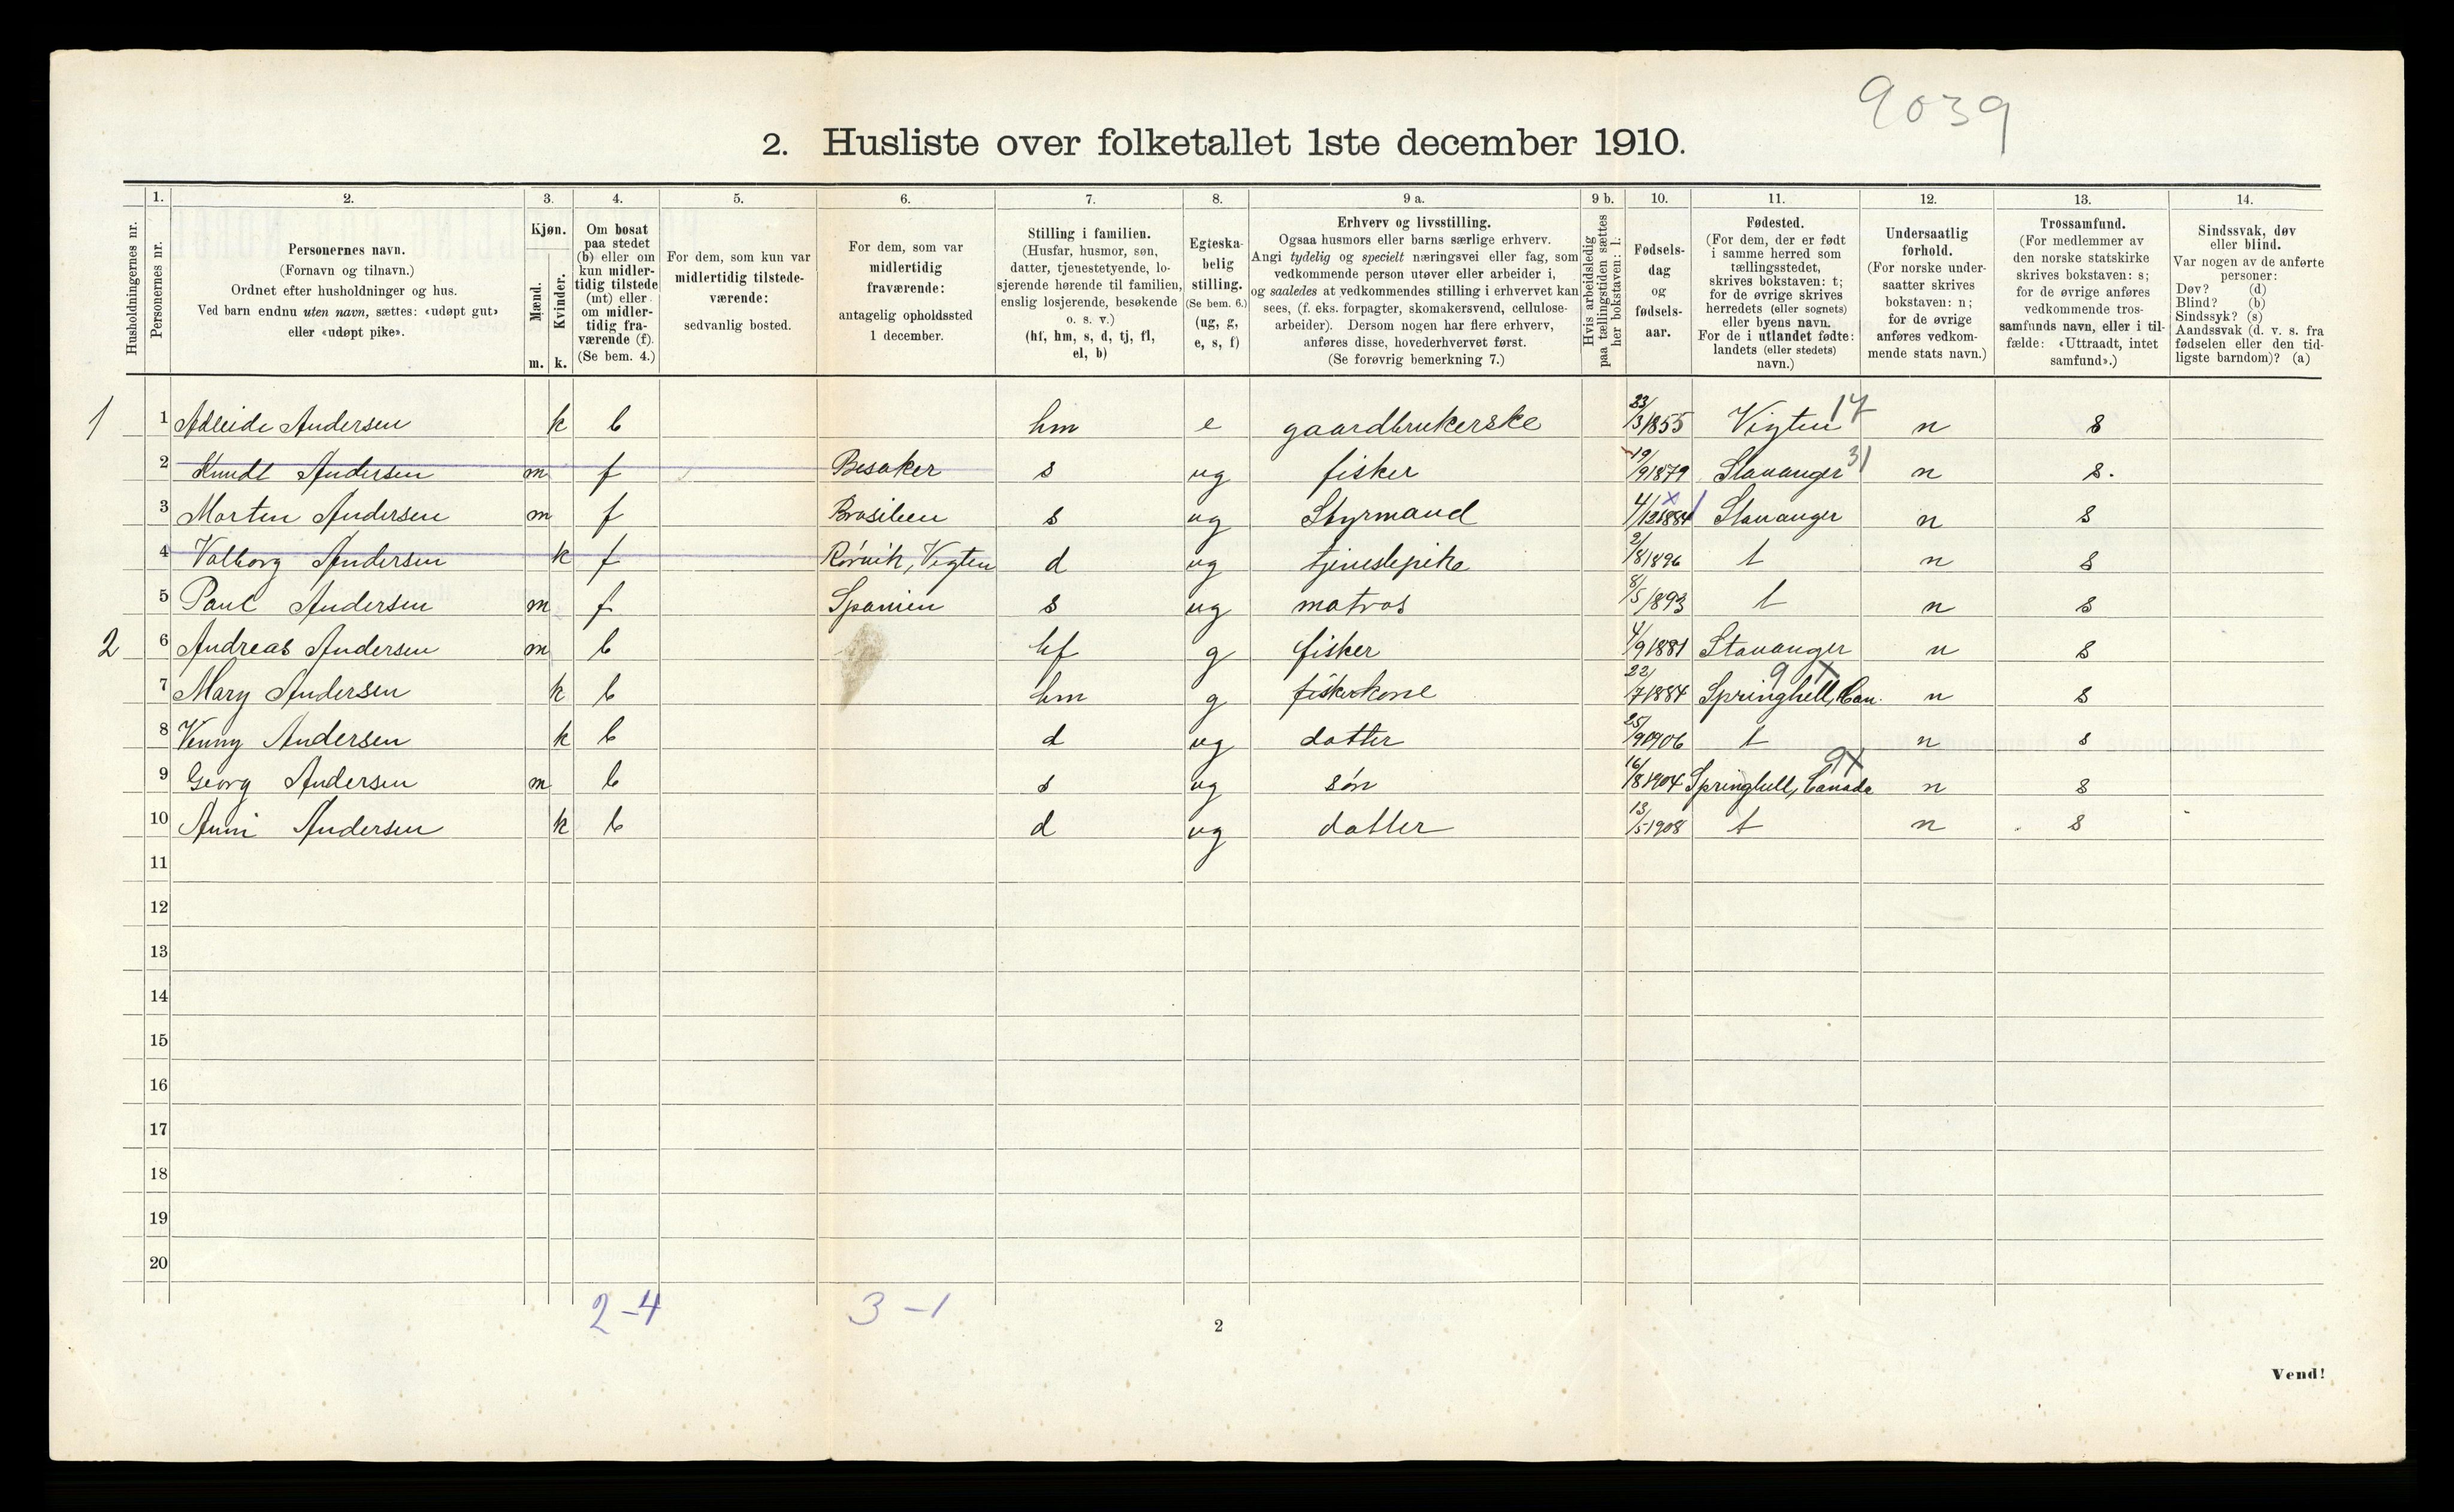 9039
2. Husliste over folketallet 1ste december 1910.
Husholdningernes nr.
1.
Personernes nr.
2.
Personernes navn.
(Fornavn og tilnavn.)
Ordnet efter husholdninger og hus.
Ved barn endnu uten navn, sættes: «udøpt gut»
eller «udøpt pike».
3.
Kjøn.
Mænd.
Kvinder.
m. k.
4.
Om bosat
paa stedet
(b) eller om
kun midler-
tidig tilstede
(mt) eller
om midler-
tidig fra-
værende (f).
(Se bem. 4.)
5.
For dem, som kun var
midlertidig tilstede-
værende:
sedvanlig bosted.
6.
For dem, som var
midlertidig
fraværende:
antagelig opholdssted
1 december.
7.
Stilling i familien.
(Husfar, husmor, søn,
datter, tjenestetyende, lo-
sjerende hørende til familien,
enslig losjerende, besøkende
o. s. v.)
(hf, hm, s, d, tj, fl,
el, b)
8.
Egteska-
belig
stilling.
(Se bem. 6.)
(ug, g,
e, s, f)
9 a.
Erhverv og livsstilling.
Ogsaa husmors eller barns særlige erhverv.
Angi tydelig og specielt næringsvei eller fag, som
vedkommende person utøver eller arbeider i,
og saaledes at vedkommendes stilling i erhvervet kan
sees, (f. eks. forpagter, skomakersvend, cellulose-
arbeider). Dersom nogen har flere erhverv,
anføres disse, hovederhvervet først.
(Se forøvrig bemerkning 7.)
9 b.
Hvis arbeidsledig
paa tællingstiden sættes
her bokstaven: l.
10.
Fødsels-
dag
og
fødsels-
aar.
11.
Fødested.
(For dem, der er født
i samme herred som
tællingsstedet,
skrives bokstaven: t;
for de øvrige skrives
herredets (eller sognets)
eller byens navn.
For de i utlandet fødte:
landets (eller stedets)
navn.)
12.
Undersaatlig
forhold.
(For norske under-
saatter skrives
bokstaven: n;
for de øvrige
anføres vedkom-
mende stats navn.)
13.
Trossamfund.
(For medlemmer av
den norske statskirke
skrives bokstaven: s;
for de øvrige anføres
vedkommende tros-
samfunds navn, eller i til-
fælde: «Uttraadt, intet
samfund».)
14.
Sindssvak, døv
eller blind.
Var nogen av de anførte
personer:
Døv? (d)
Blind? (b)
Sindssyk? (s)
Aandssvak (d. v. s. fra
fødselen eller den tid-
ligste barndom)? (a)
1 1 Adleide Andersen k b hm e gaardbrukerske 23/3 1855 Vigten 17 n s
2 Knudt Andersen m f Besaker s ug fisker 19/9 1879 Stavanger 31 n s.
3 Morten Andersen m f Brasilien s ug Styrmand 4/12 1884 Stavanger n s
4 Valborg Andersen k f Rörvik, Vigten d ug tjenestepike 2/8 1896 t n s
5 Paul Andersen m f Spanien s ug matros 8/5 1893 t n s
2 6 Andreas Andersen m b hf g fisker 4/9 1881 Stavanger n s
7 Mary Andersen k b hm g fiskerkone 22/7 1884 Springhell, Can. 9 x n s
8 Venny Andersen k b d ug datter 25/9 1906 t n s
9 Georg Andersen m b s ug són 16/8 1904 Springhull, Canada 9x n s
10 Anni Andersen k b d ug datter 13/5 1908 t n s
11
12
13
14
15
16
17
18
19
20
2-4 3-1
2
Vend!